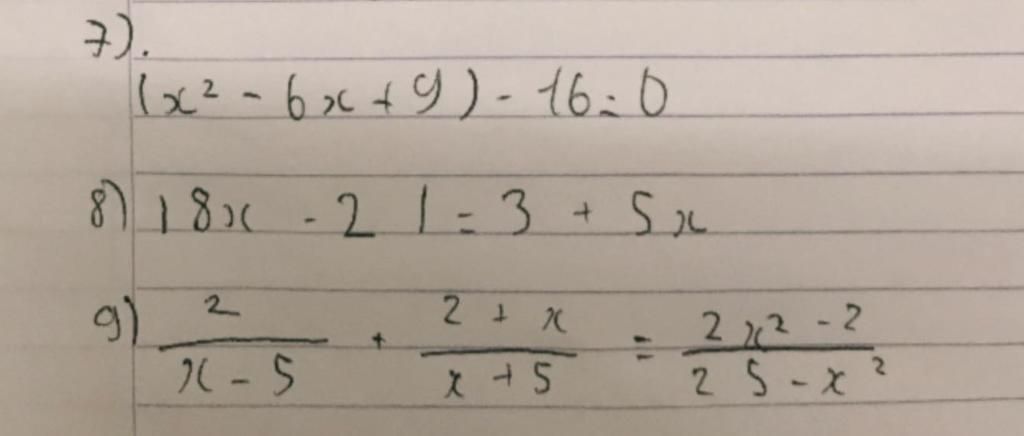 7).
(x² - 6x + 9) - 16 = 0
8) |8x - 2| = 3 + 5x
9) 2/(x - 5) + (2 + x)/(x + 5) = (2x² - 2)/(25 - x²)